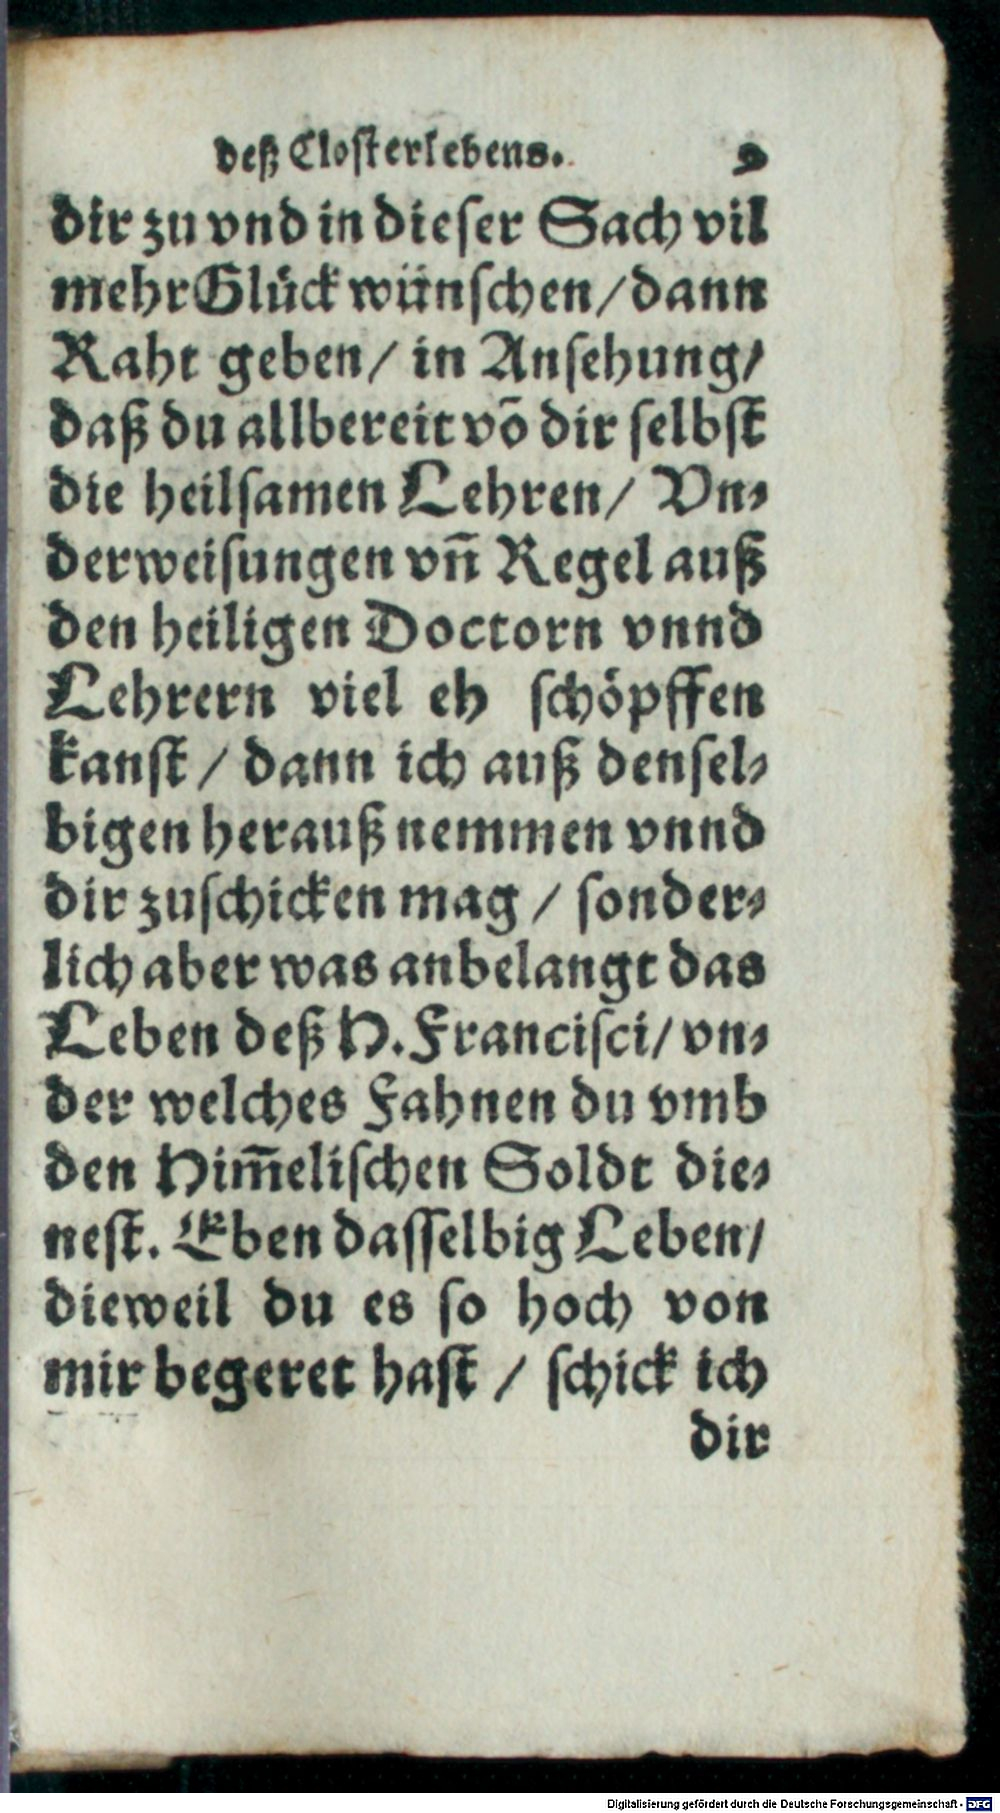 deß Closterlebens. 2
dir zu vnd in dieser Sach vil
mehr Glück wünschen/ dann
Raht geben/ in Ansehung/
daß du allbereit võ dir selbst
die heilsamen Lehren/ Vn-
derweisungen vñ Regel auß
den heiligen Doctorn vnnd
Lehrern viel eh schöpffen
kanst/ dann ich auß densel-
bigen herauß nemmen vnnd
dir zuschicken mag/ sonder-
lich aber was anbelangt das
Leben deß H. Francisci/ vn-
der welches Fahnen du vmb
den Him̃elischen Soldt die-
nest. Eben dasselbig Leben/
dieweil du es so hoch von
mir begeret hast/ schick ich
dir
Digitalisierung gefördert durch die Deutsche Forschungsgemeinschaft - DFG